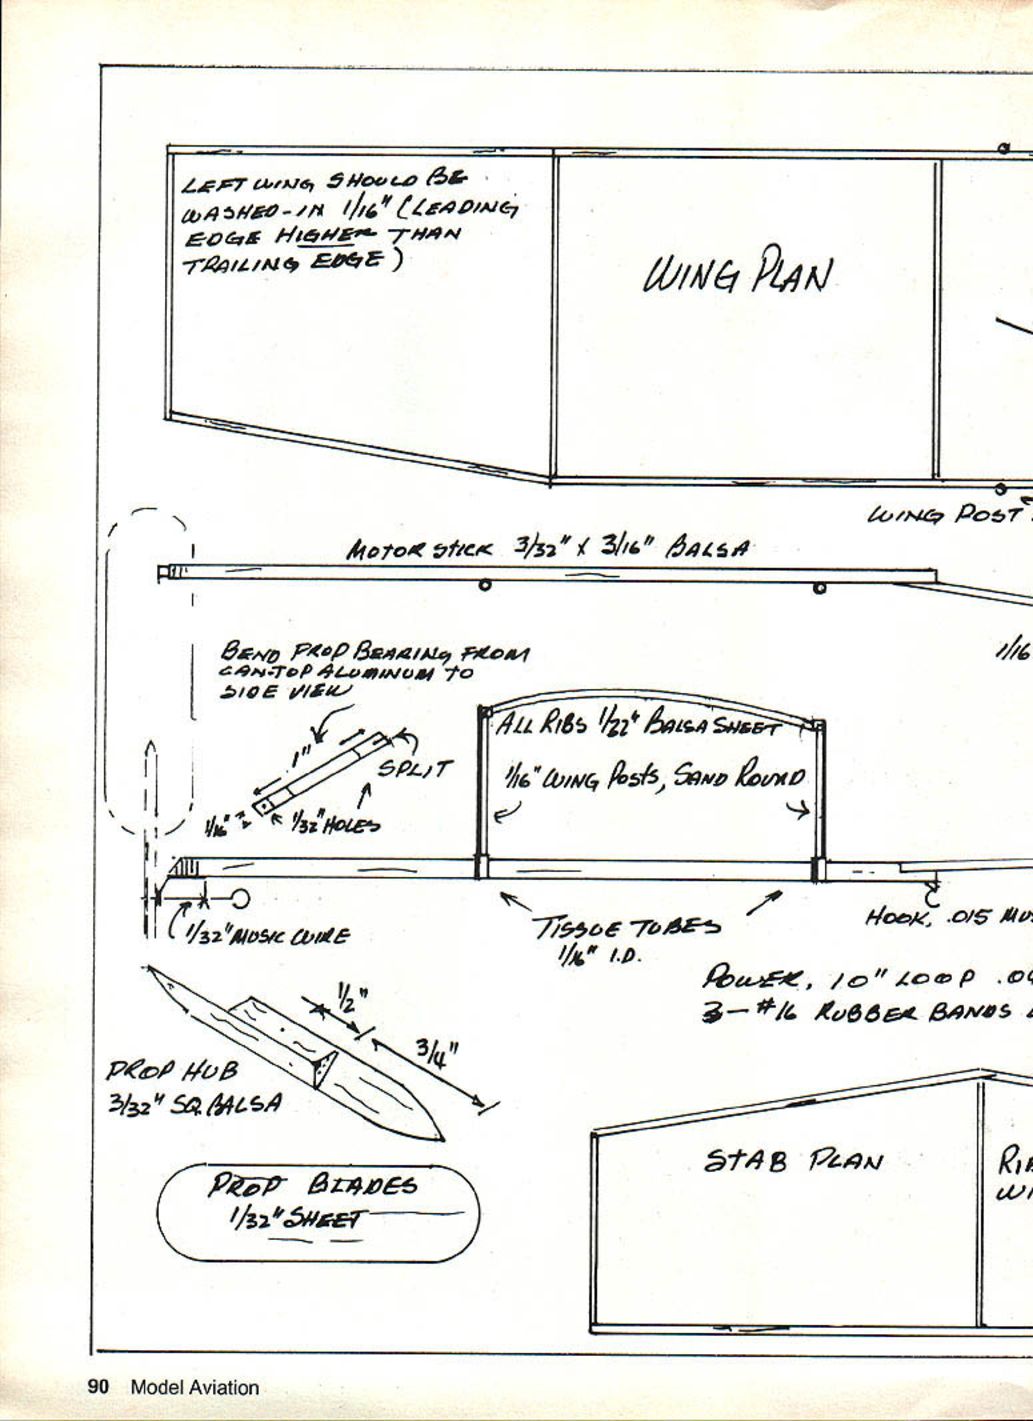 LEFT WING SHOULD BE
WASHED-IN 1/16" (LEADING
EDGE HIGHER THAN
TRAILING EDGE)
WING PLAN
WING POST
MOTOR STICK 3/32" X 3/16" BALSA
1/16
BEND PROP BEARING FROM
CAN-TOP ALUMINUM TO
SIDE VIEW
1"
SPLIT
1/16"
1/32" HOLES
ALL RIBS 1/32" BALSA SHEET
1/16" WING POSTS, SAND ROUND
1/32" MUSIC WIRE
TISSUE TUBES
1/16" I.D.
HOOK, .015 MUS
POWER, 10" LOOP .0
3-#16 RUBBER BANDS
1/2"
3/4"
PROP HUB
3/32" SQ. BALSA
PROP BLADES
1/32" SHEET
STAB PLAN
RI
WI
90 Model Aviation